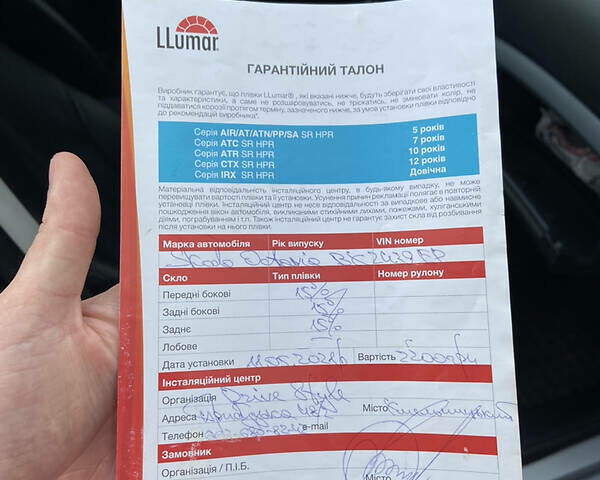 LLumar
ГАРАНТІЙНИЙ ТАЛОН
Виробник гарантує, що плівки LLumar®, які вказані нижче, будуть зберігати свої властивості
та характеристики, а саме не розшаровуватись, не тріскатись, не змінювати колір, не
піддаватися корозії протягом терміну, зазначеного нижче, за умов установки плівки відповідно
до рекомендацій виробника*.
Серія AIR/AT/ATN/PP/SA SR HPR 5 років
Серія ATC SR HPR 7 років
Серія ATR SR HPR 10 років
Серія CTX SR HPR 12 років
Серія IRX SR HPR Довічна
Матеріальна відповідальність інсталяційного центру, в будь-якому випадку, не може
перевищувати вартості плівки та її установки. Усунення причин рекламації полягає в повторній
установці плівки. Інсталяційний центр не несе відповідальності за випадкове або навмисне
пошкодження вікон автомобіля, викликаними стихійними лихами, пожежами, хуліганськими
діями, пограбуванням і т.п. Також інсталяційний центр не гарантує захист скла від розбивання
після установки на нього плівки.
Марка автомобіля Рік випуску VIN номер
Skoda Octavia
Скло Тип плівки Номер рулону
Передні бокові 15%
Задні бокові 15%
Заднє 15%
Лобове
Дата установки Вартість 2200грн
Інсталяційний центр
Організація Drive Style
Адреса Місто Хмельницький
Телефон e-mail
Замовник
Організація / П.І.Б.
Місто